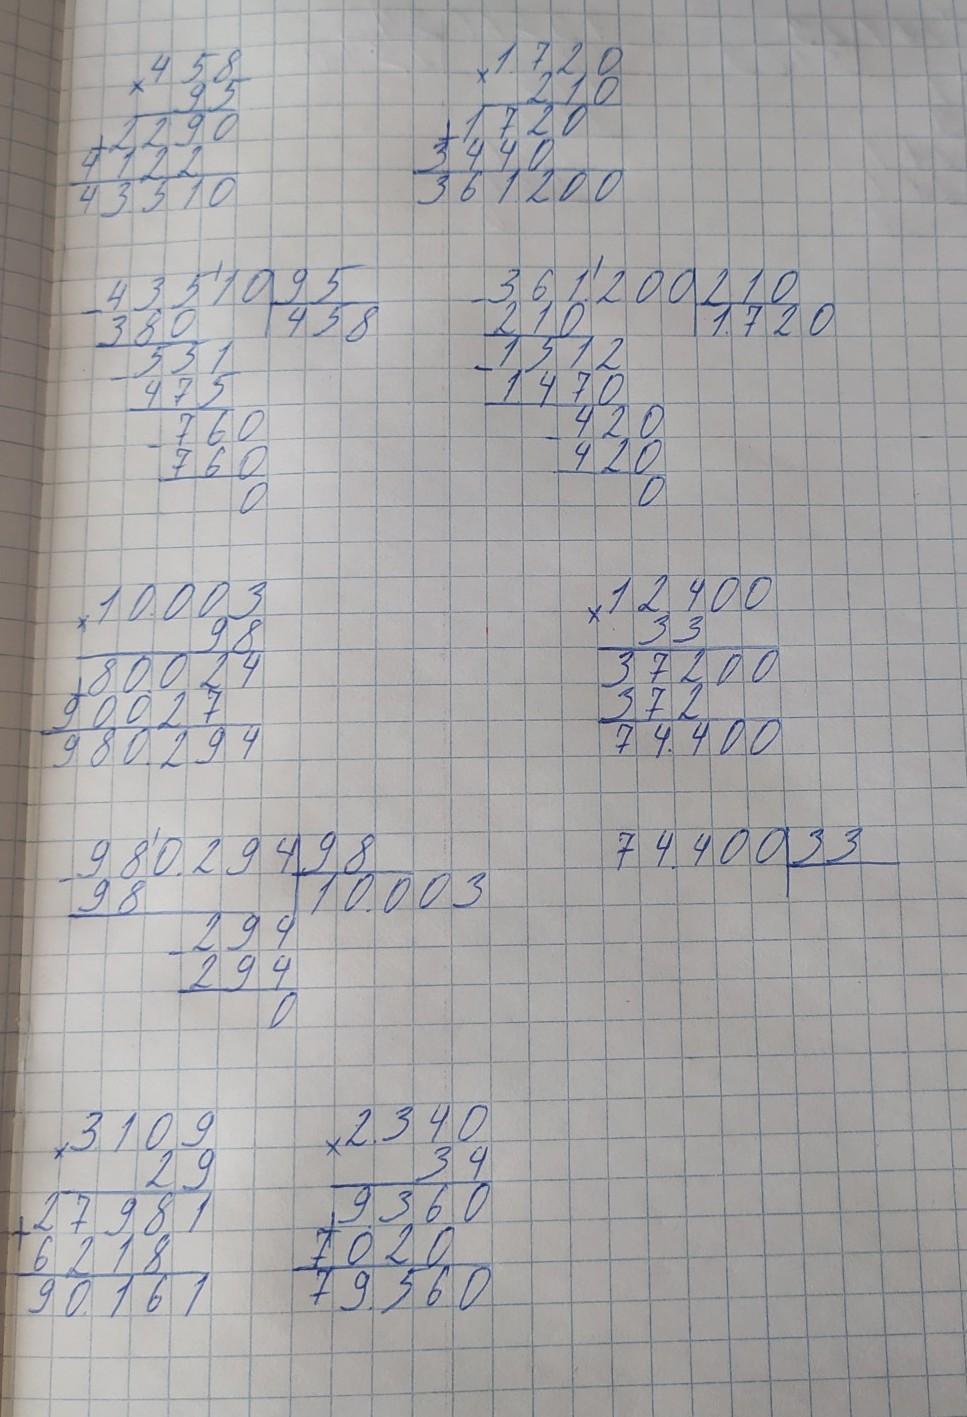 × 458
95
+ 2290
4122
43510
× 1.720
210
+ 1720
3440
361200
- 435'10 | 95
380 | 458
- 531
475
- 760
760
0
- 361.'200 | 210
210 | 1.720
- 1512
1.470
- 420
420
0
× 10.003
98
+ 80024
90027
980.294
× 12.400
33
37200
372
74.400
- 98'0.294 | 98
98 | 10.003
- 294
294
0
74.400 | 33
× 3109
29
+ 27981
6218
90.161
× 2.340
34
+ 9360
7020
79.560